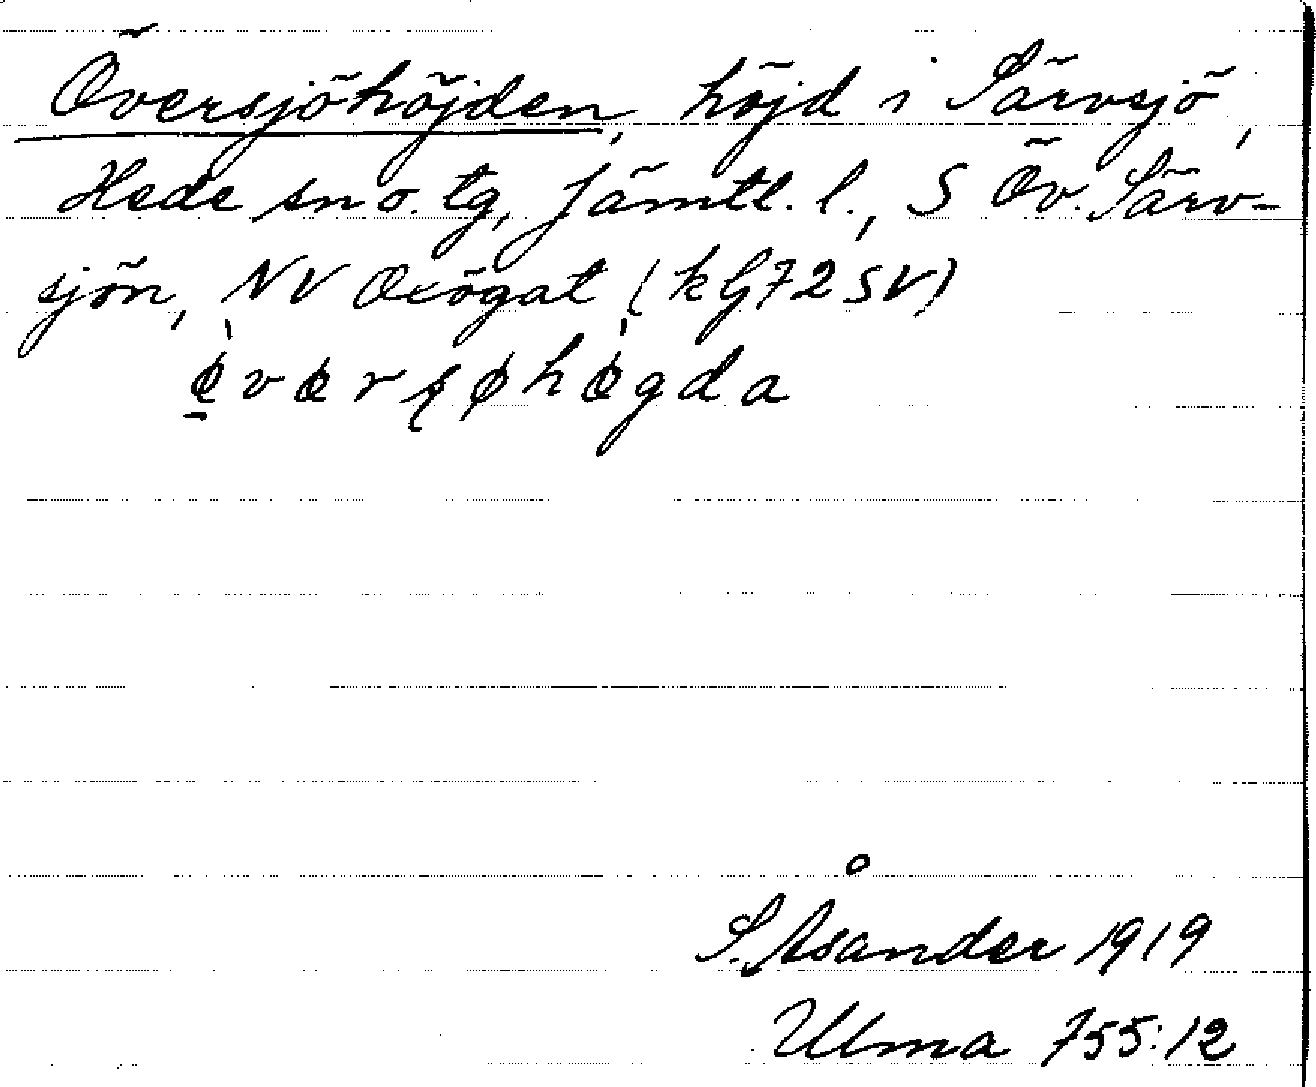 Översjöhöjden, höjd i Särvsjö,
Hede sn o. tg, Jämtl. l., S Öv. Särv-
sjön, NV Oxögat (kbl 72 SV)
S. Åsander 1919
Ulma 755:12